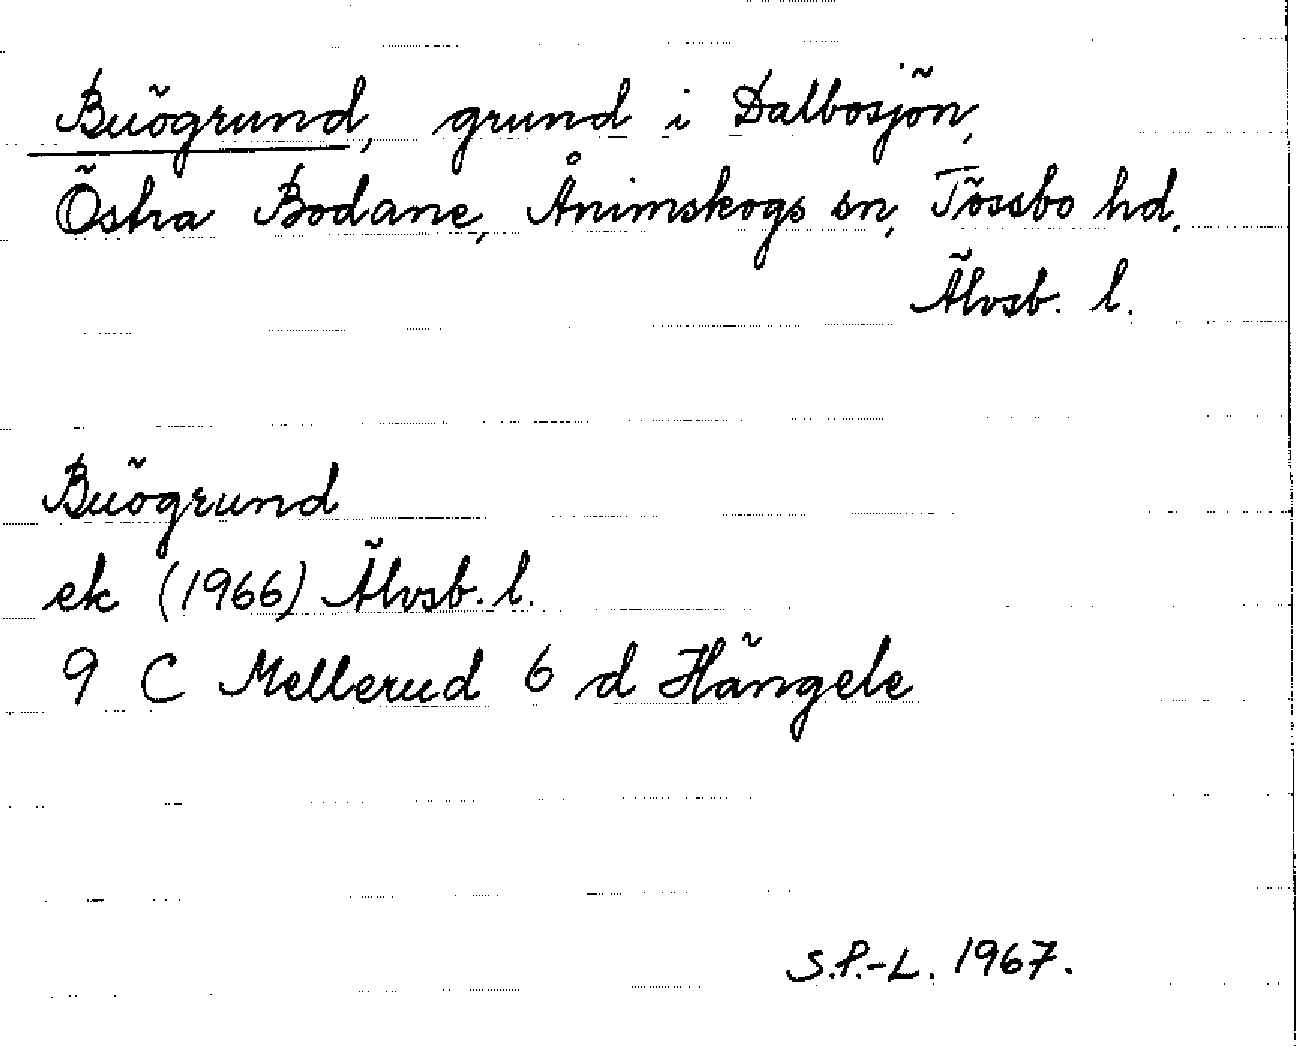 Buögrund, grund i Dalbosjön,
Östra Bodane, Ånimskogs sn, Tössbo hd.
Älvsb. l.
Buögrund
ek (1966) Älvsb. l.
9 C Mellerud 6 d Hängele
S.P.-L. 1967.